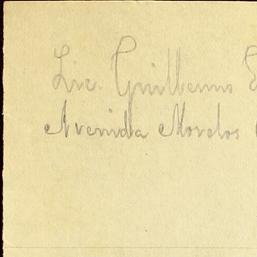 Lic. Guillermo
Avenida Morelos